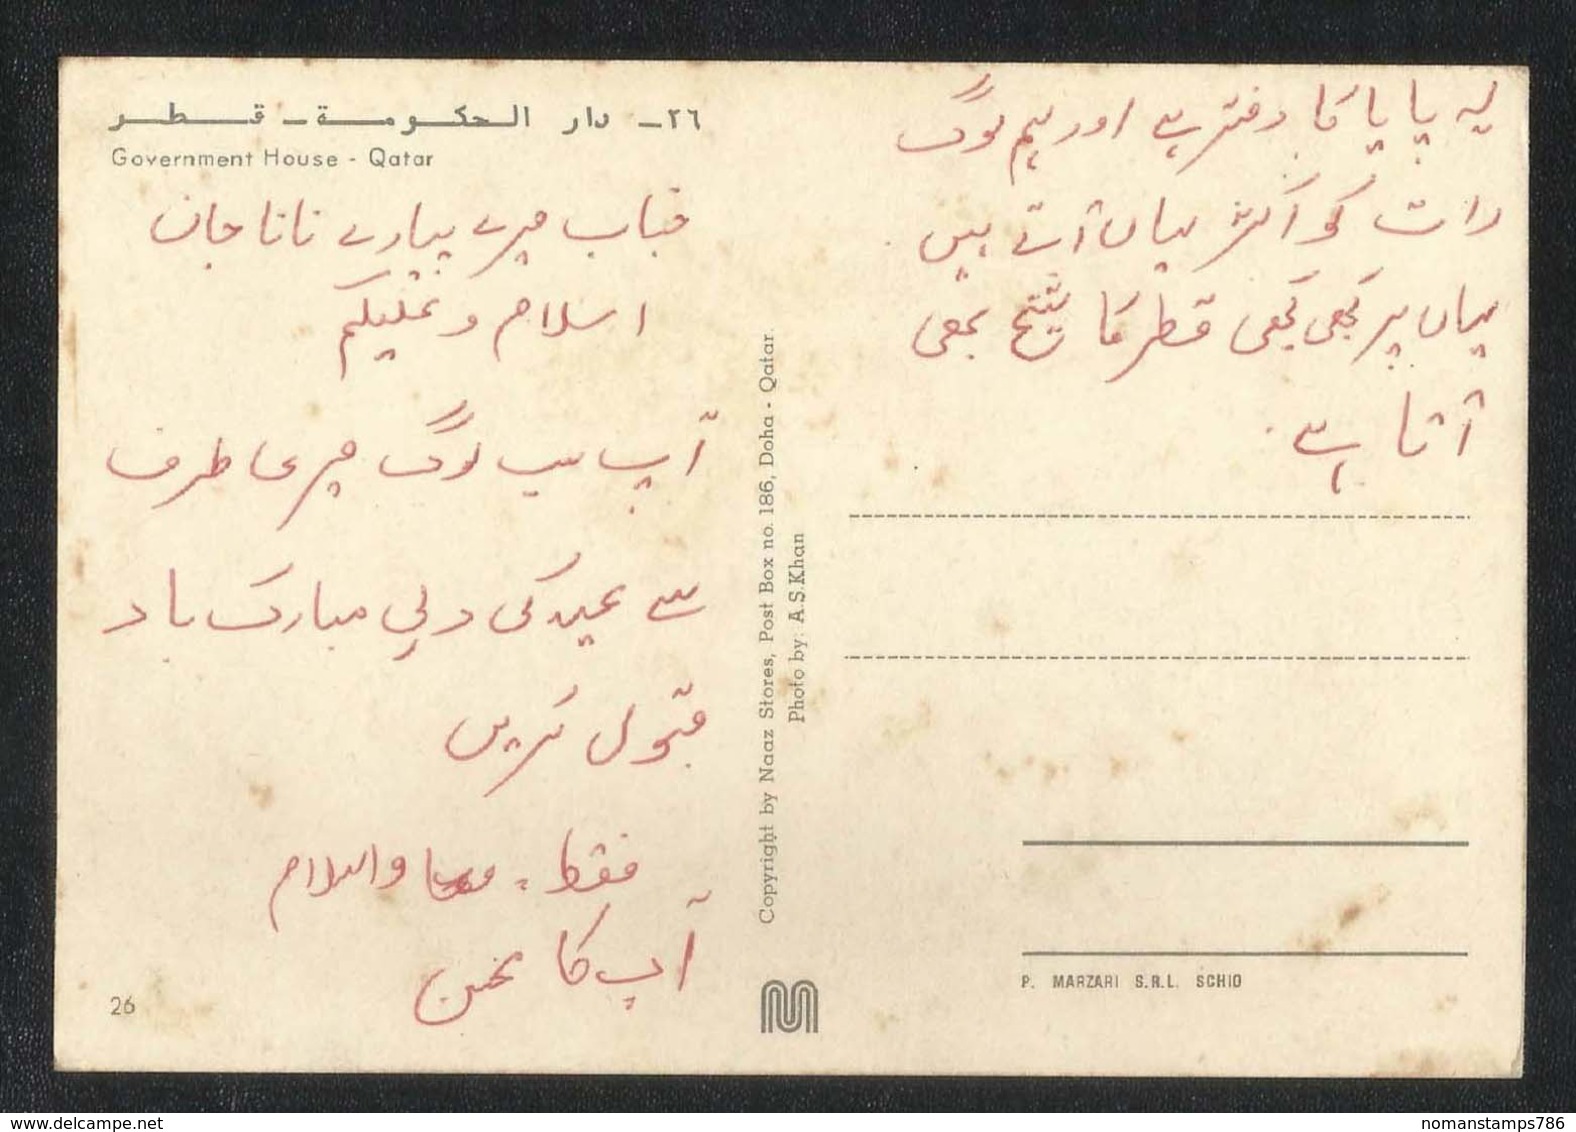 ٢٦ - دار الحكومة - قطر
Government House - Qatar
جناب میرے پیارے نانا جان
اسلام وعلیکم
آپ سب لوگ میری طرف
سے عید کی دلی مبارک باد
قبول کریں
فقط والسلام
آپ کا
26
Copyright by Naaz Stores, Post Box no. 186, Doha - Qatar.
Photo by: A.S.Khan
یہ پاپا کا دفتر ہے اور ہم لوگ
رات کو اکثر یہاں آتے ہیں
یہاں پر کبھی کبھی قطر کا شیخ بھی
آتا ہے.
P. MARZARI S.R.L. SCHIO
nomanstamps786
delcampe.net